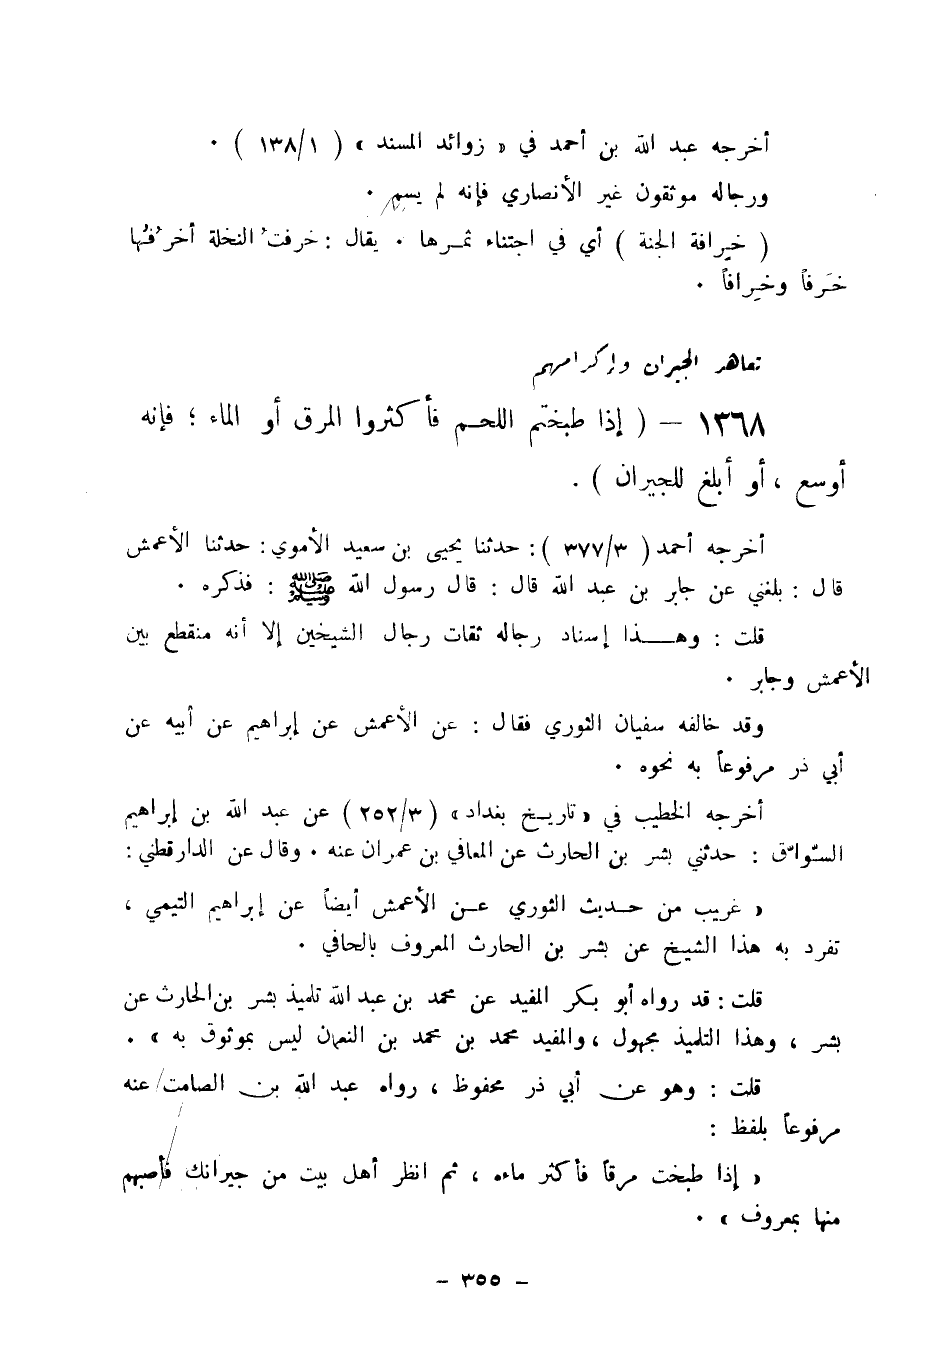 أخرجه عبد الله بن أحمد في « زوائد المسند » ( ١٣٨/١ ) .
ورجاله موثقون غير الأنصاري فإنه لم يسم .
( خِيرافة الجنة ) أي في اجتناء ثمـرها . يقال : خرفت' النخلة أخر'فـُها
خَرفاً وخِرافاً .
تعاهد الجيران وإكرامهم
١٣٦٨ – ( إذا طبختم اللحـم فأكثروا المرق أو الماء ؛ فإنه
أوسع ، أو أبلغ للجيران ) .
أخرجه أحمد ( ٣٧٧/٣ ) : حدثنا يحيى بن سعيد الأموي : حدثنا الأعمش
قال : بلغني عن جابر بن عبد الله قال : قال رسول الله ﷺ : فذكره .
قلت : وهـــذا إسناد رجاله ثقات رجال الشيخين إلا أنه منقطع بين
الأعمش وجابر .
وقد خالفه سفيان الثوري فقال : عن الأعمش عن إبراهيم عن أبيه عن
أبي ذر مرفوعاً به نحوه .
أخرجه الخطيب في « تاريـخ بغداد » ( ٢٥٢/٣ ) عن عبد الله بن إبراهيم
السّواق : حدثني بشر بن الحارث عن المعافي بن عمران عنه . وقال عن الدارقطني :
« غريب من حـديث الثوري عـن الأعمش أيضاً عن إبراهيم التيمي ،
تفرد به هذا الشيخ عن بشر بن الحارث المعروف بالحافي .
قلت : قد رواه أبو بكر المفيد عن محمد بن عبد الله تلميذ بشر بن الحارث عن
بشر ، وهذا التلميذ مجهول ، والمفيد محمد بن محمد بن النعمان ليس بموثوق به » .
قلت : وهو عن أبي ذر محفوظ ، رواه عبد الله بن الصامت عنه
مرفوعاً بلفظ :
« إذا طبخت مرقاً فأكثر ماءه ، ثم انظر أهل بيت من جيرانك فأصبهم
منها بمعروف » .
– ٣٥٥ –